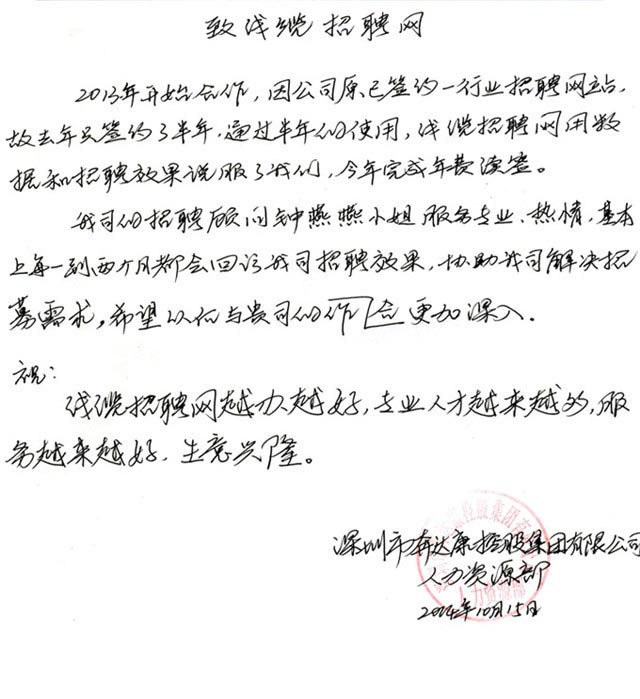 致线缆招聘网
2013年开始合作，因公司原已签约一行业招聘网站，
故去年只签约了半年，通过半年的使用，线缆招聘网用数
据和招聘效果说服了我们，今年完成年费续签。
我司的招聘顾问钟燕燕小姐服务专业、热情，基本
上每一到两个月都会回访我司招聘效果，协助我司解决招
募需求，希望以后与贵司的作合更加深入．
祝：
线缆招聘网越办越好，专业人才越来越多，服
务越来越好，生意兴隆。
深圳市奔达康控股集团有限公司
人力资源部
2014年10月15日